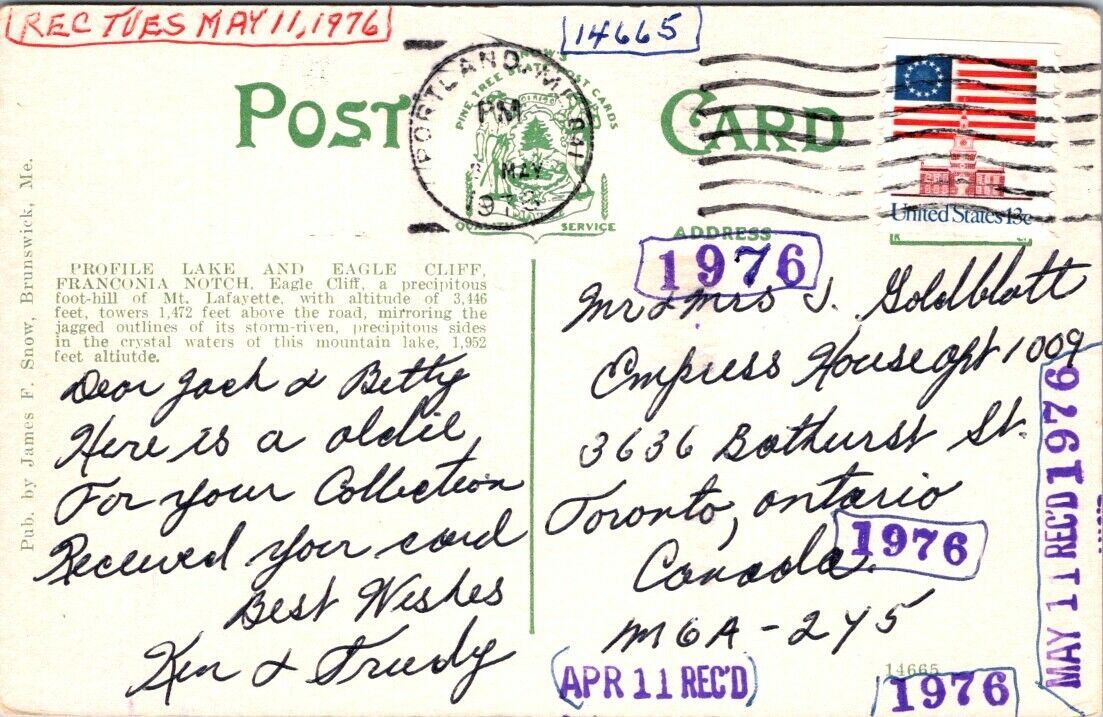 REC TUES MAY 11, 1976
14665
POST CARD
SNOW'S
PINE TREE STATE POST CARDS
DIRIGO
QUALITY
SERVICE
PORTLAND, ME
PM
MAY
United States 13c
ADDRESS
1976
PROFILE LAKE AND EAGLE CLIFF,
FRANCONIA NOTCH, Eagle Cliff, a precipitous
foot-hill of Mt. Lafayette, with altitude of 3,446
feet, towers 1,472 feet above the road, mirroring the
jagged outlines of its storm-riven, precipitous sides
in the crystal waters of this mountain lake, 1,952
feet altiutde.
Pub. by James F. Snow, Brunswick, Me.
Dear Jack & Betty
Here is a oldie,
For your Collection
Received your card
Best Wishes
Ken & Trudy
Mr & Mrs J. Goldblatt
Empress House apt 1009
3636 Bathurst St.
Toronto, ontario
Canada.
M6A - 2Y5
1976
MAY 11 REC'D 1976
APR 11 REC'D
14665
1976